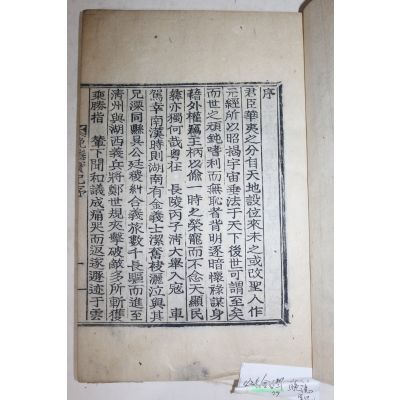 序
君臣華夷之分自天地設位來未之或改聖人作
元經所以昭揭宇宙垂法于天下後世可謂至矣
而世之頑鈍嗜利而無恥者背明逐暗懷祿謀身
藉外權竊主柄以偸一時之榮寵而不念天顯民
彝亦獨何哉粤在 長陵丙子淸大擧入寇 車
駕幸南漢時則湖南有金義士潔奮梭灑泣與其
兄深同縣具公廷稷糾合義旅數千長驅而進至
淸州與湖西義兵將鄭世規夾擊破敵多所斬獲
乘勝指 輦下聞和議成痛哭而返遂遯迹于雲
實紀序